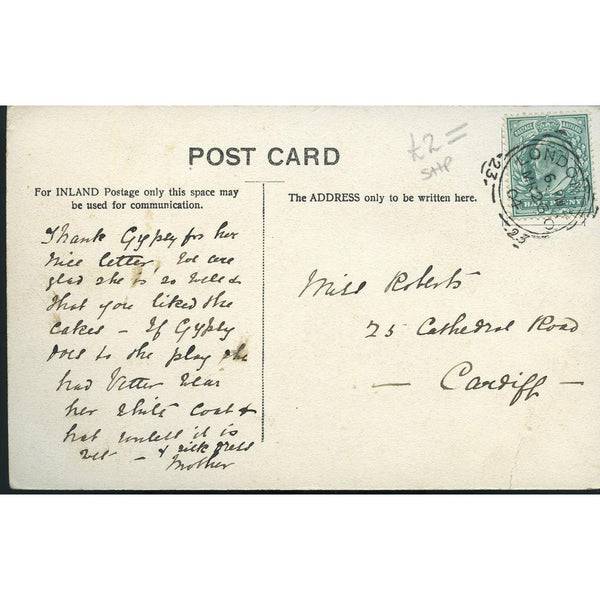 POST CARD
£2=
For INLAND Postage only this space may
be used for communication.
The ADDRESS only to be written here.
Thank Gypsy for her
nice letter. We are
glad she is so well &
that you liked the
cakes – If Gypsy
does to the play she
had better wear
her white coat &
hat unless it is
wet – & silk dress
Mother
Miss Roberts
25 Cathedral Road
— Cardiff —
POSTAGE REVENUE
HALFPENNY
LONDON
23
23